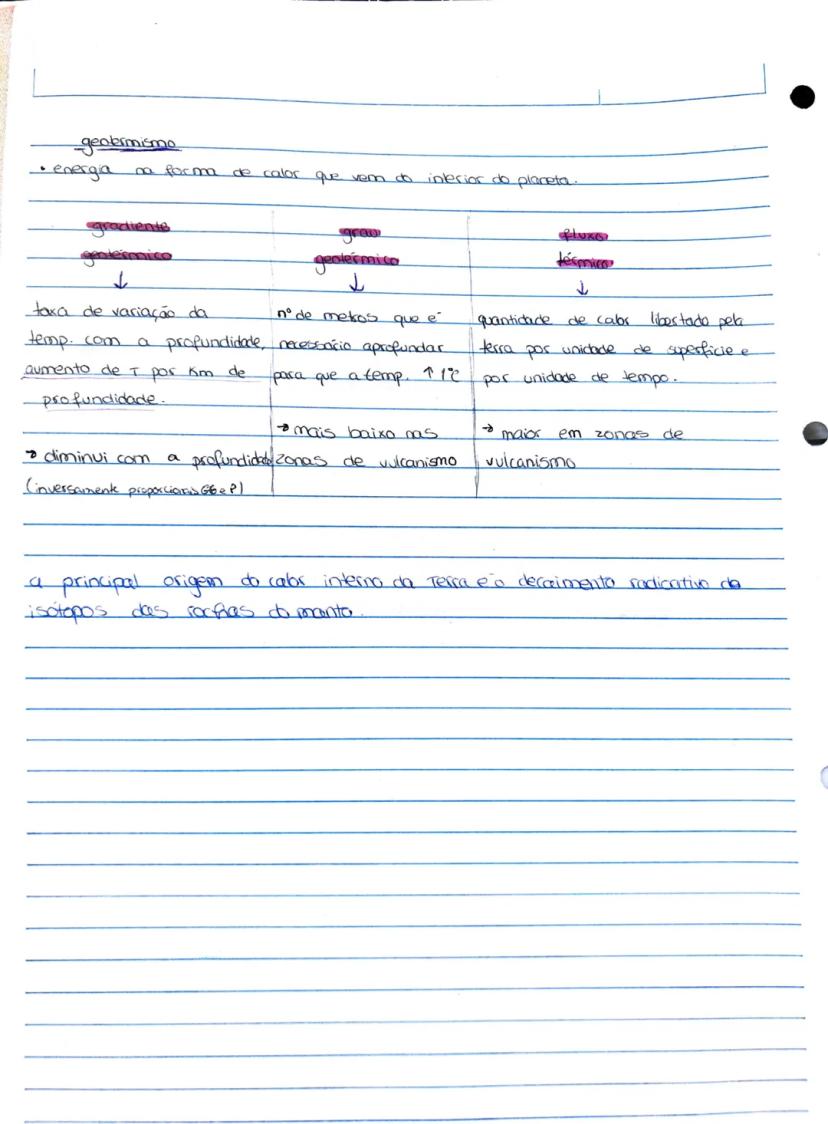 geotermismo
• energia na forma de calor que vem do interior do planeta.
gradiente
geotérmico
↓
taxa de variação da
temp. com a profundidade,
aumento de T por Km de
profundidade.
→ diminui com a profundidade
(inversamente proporcionais GG e P)
grau
geotérmico
↓
nº de metros que é
necessário aprofundar
para que a temp. ↑ 1ºC
→ mais baixo nas
zonas de vulcanismo
fluxo
térmico
↓
quantidade de calor libertado pela
terra por unidade de superfície e
por unidade de tempo.
→ maior em zonas de
vulcanismo
a principal origem do calor interno da Terra é o decaimento radioativo de
isótopos das rochas do manto.